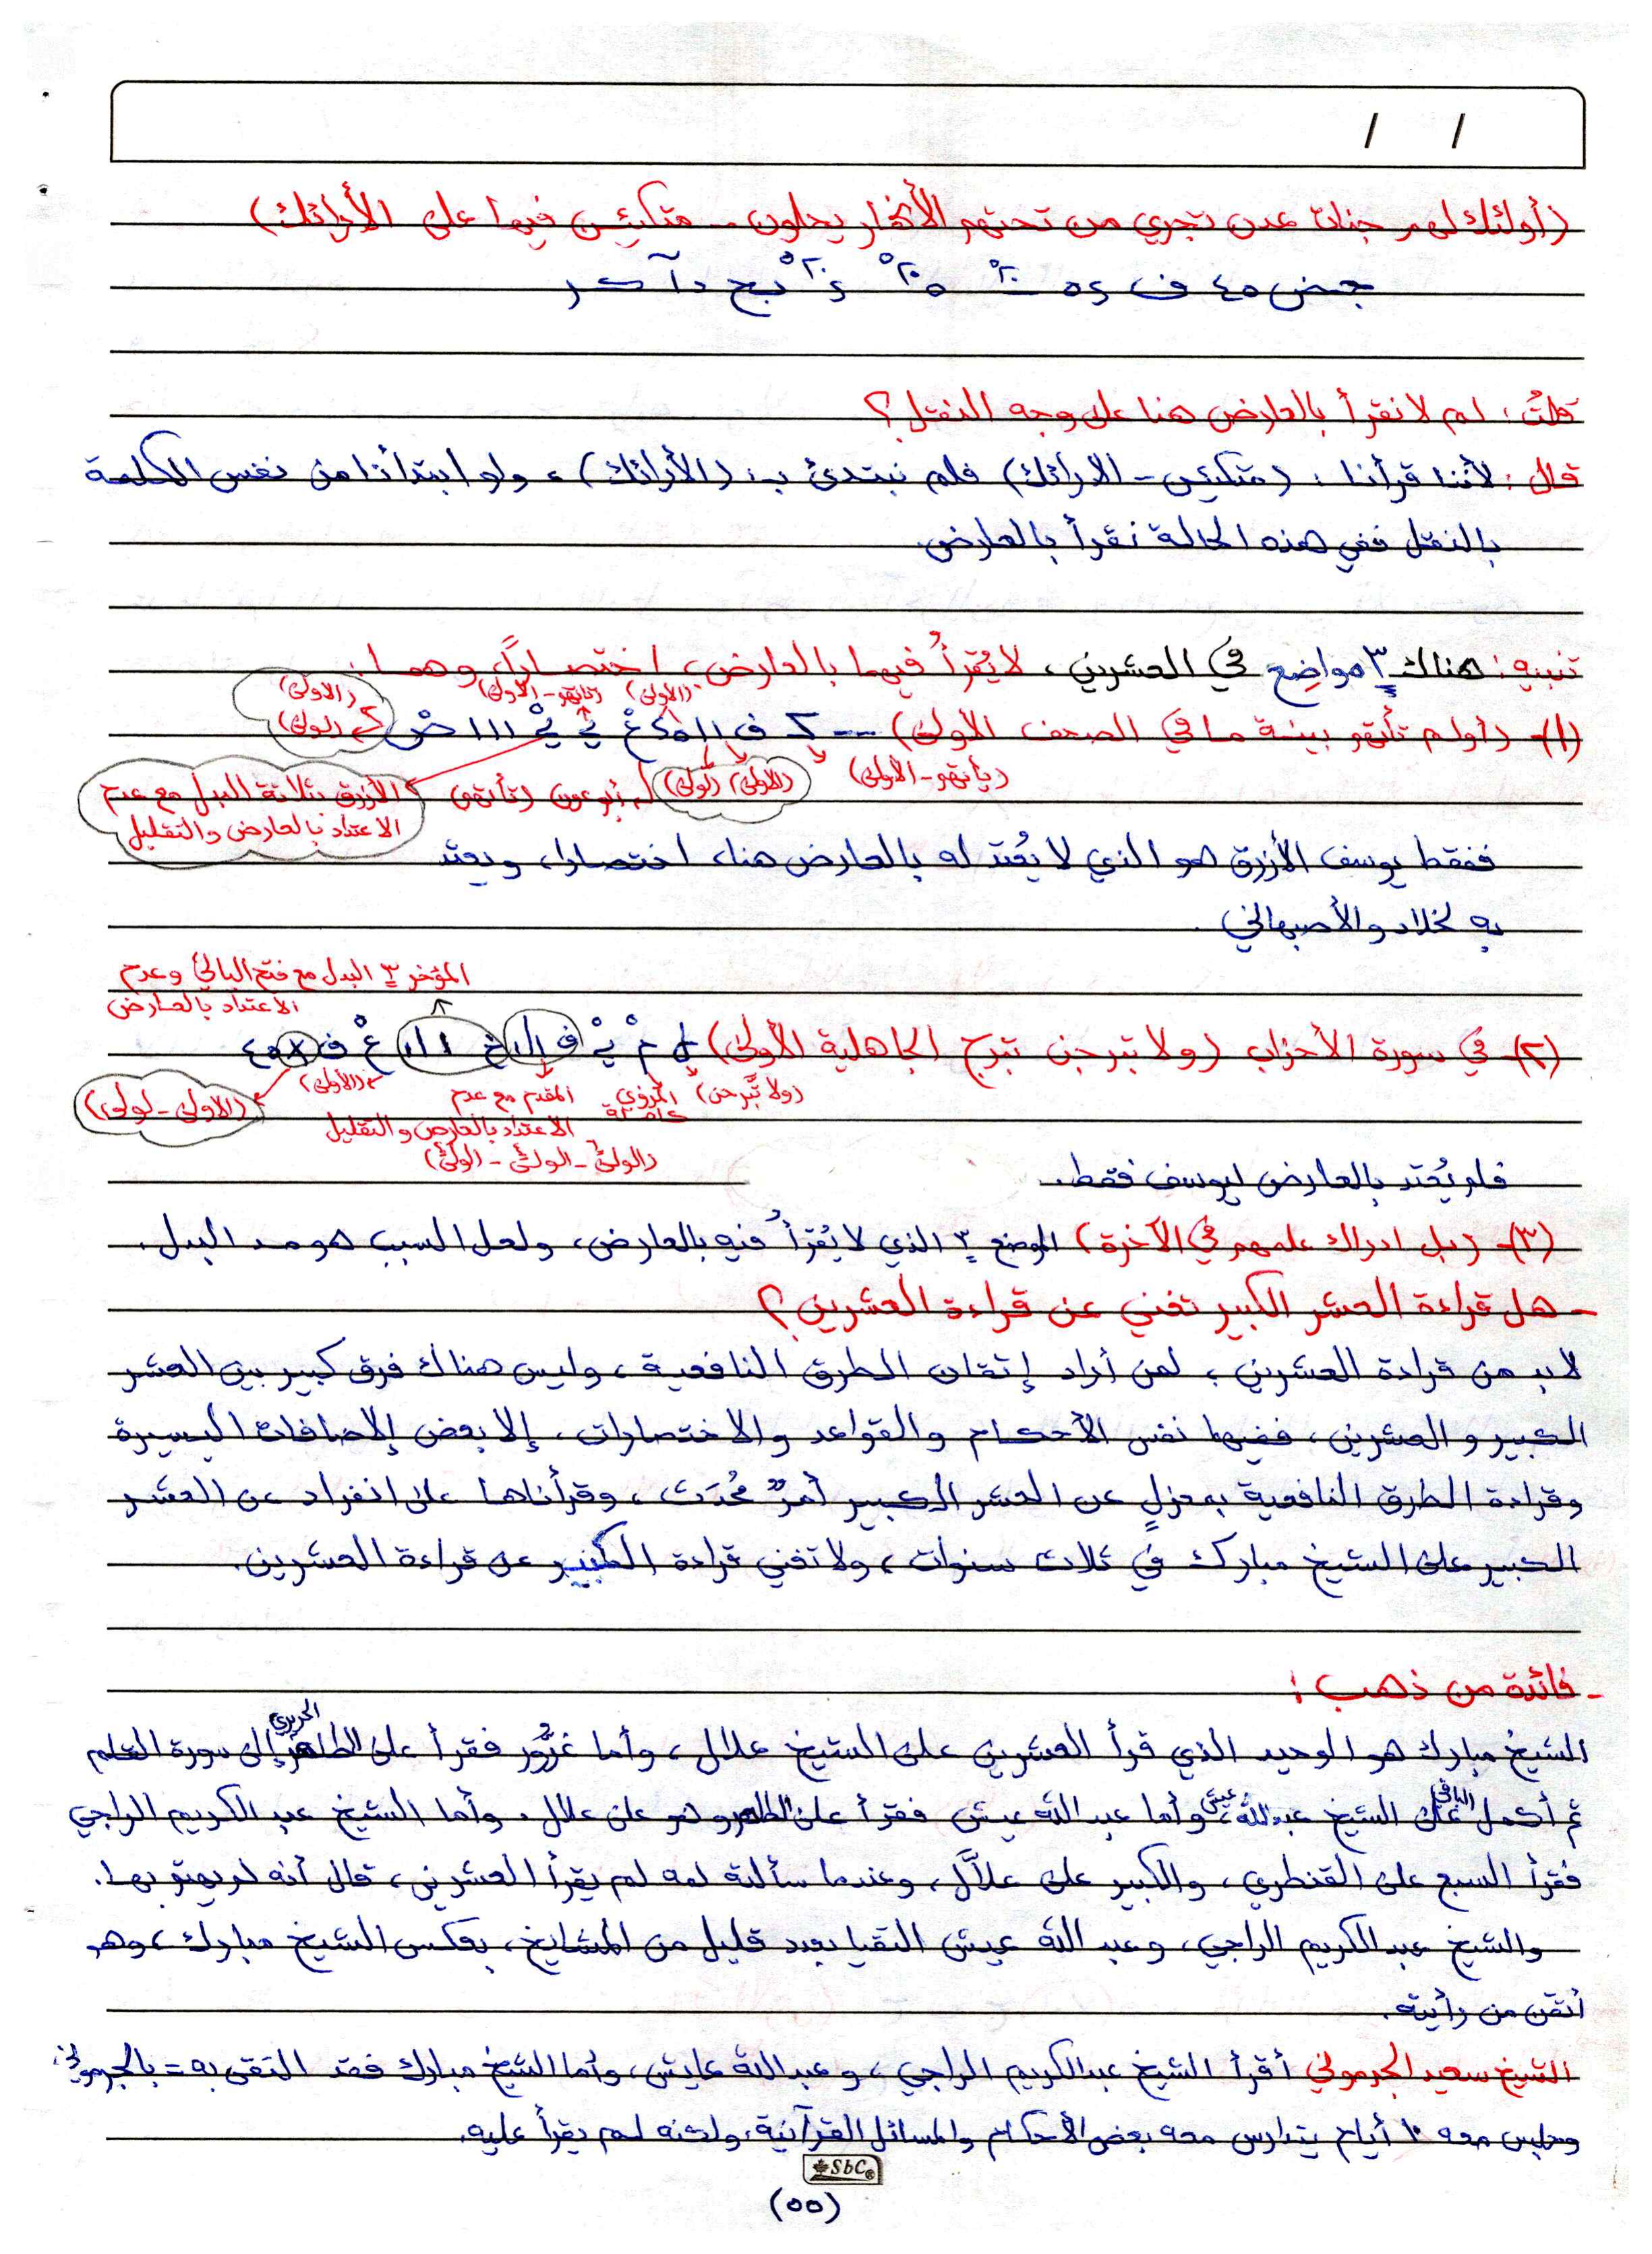 / /
(أولئك لهم جنات عدن تجري من تحتهم الأنهار يحلون -- متكئين فيها على الأرائك)
قلتُ: لم لا نقرأ بالعارض هنا على وجه النقل؟
قال: لأننا قرأنا: (متكئين - الارائك) فلم نبتدئ بـ: (الأرائك)، ولو ابتدأنا من نفس الكلمة
بالنقل ففي هذه الحالة نقرأ بالعارض.
تنبيه: هناك ٣ مواضع في العشرين، لا يُقرأُ فيها بالعارض، اختصاراً، وهما:
(الأولى) (تاتهو - الأولى) (الاولى)
(١)- (أولم تأتهم بينة ما في الصحف الأولى) (لولى)
(يأتهو - الأولى) (الاولى) (لولى) أبو عون (تأتهم)
الأزرق بثلاثة البدل مع عدم
الاعتداد بالعارض والتقليل
فقط يوسف الأزرق هو الذي لا يُعتد له بالعارض هنا، اختصارا، ويعتد
به لخلاد والأصبهاني.
المؤخر ٣ البدل مع فتح اليائي وعدم
الاعتداد بالعارض
(٢)- في سورة الأحزاب (ولا تبرجن تبرج الجاهلية الأولى)
(ولا تّبرجن) المروزي المقدم مع عدم (الأولى) (الاولى - لولى)
الاعتداد بالعارض والتقليل
فلم يُعتد بالعارض ليوسف فقط.
(٣)- (بل ادراك علمهم في الآخرة) الموضع ٣ الذي لا يُقرأُ فيه بالعارض، ولعل السبب هو مد البدل.
- هل قراءة العشر الكبير تغني عن قراءة العشرين؟
لابد من قراءة العشرين، لمن أراد إتقان الطرق النافعية، وليس هناك فرق كبير بين العشر
الكبير والعشرين، ففيها نفس الأحكام والقواعد والاختصارات، إلا بعض الإضافات اليسيرة
وقراءة الطرق النافعية بمعزلٍ عن العشر الكبير أمرٌ مُحدَث، وقرأناها على انفراد عن العشر
الكبير على الشيخ مبارك في ثلاث سنوات، ولا تغني قراءة الكبير عن قراءة العشرين.
- فائدة من ذهب:
الشيخ مبارك هو الوحيد الذي قرأ العشرين على الشيخ علال، وأما غزُّور فقرأ على الطاهر الحريري إلى سورة القلم
ثم أكمل الباقي على الشيخ عبد الله عيش، وأما عبد الله عيش فقرأ على الطاهر وهو على علال، وأما الشيخ عبد الكريم الراجي
فقرأ السبع على القنطري، والكبير على علاَّل، وعندما سألته لمه لم يقرأ العشرين، قال أنه لم يهتم بها.
والشيخ عبد الكريم الراجي، وعبد الله عيش التقيا بعدد قليل من المشايخ، بعكس الشيخ مبارك، وهو
أتقن من رأيته.
الشيخ سعيد الجرموني أقرأ الشيخ عبد الكريم الراجي، وعبد الله عايش، وأما الشيخ مبارك فقد التقى به = بالجرموني،
وجلس معه ١٠ أيام يتدارس معه بعض الأحكام والمسائل القرآنية، ولكنه لم يقرأ عليه.
SbC
(٥٥)